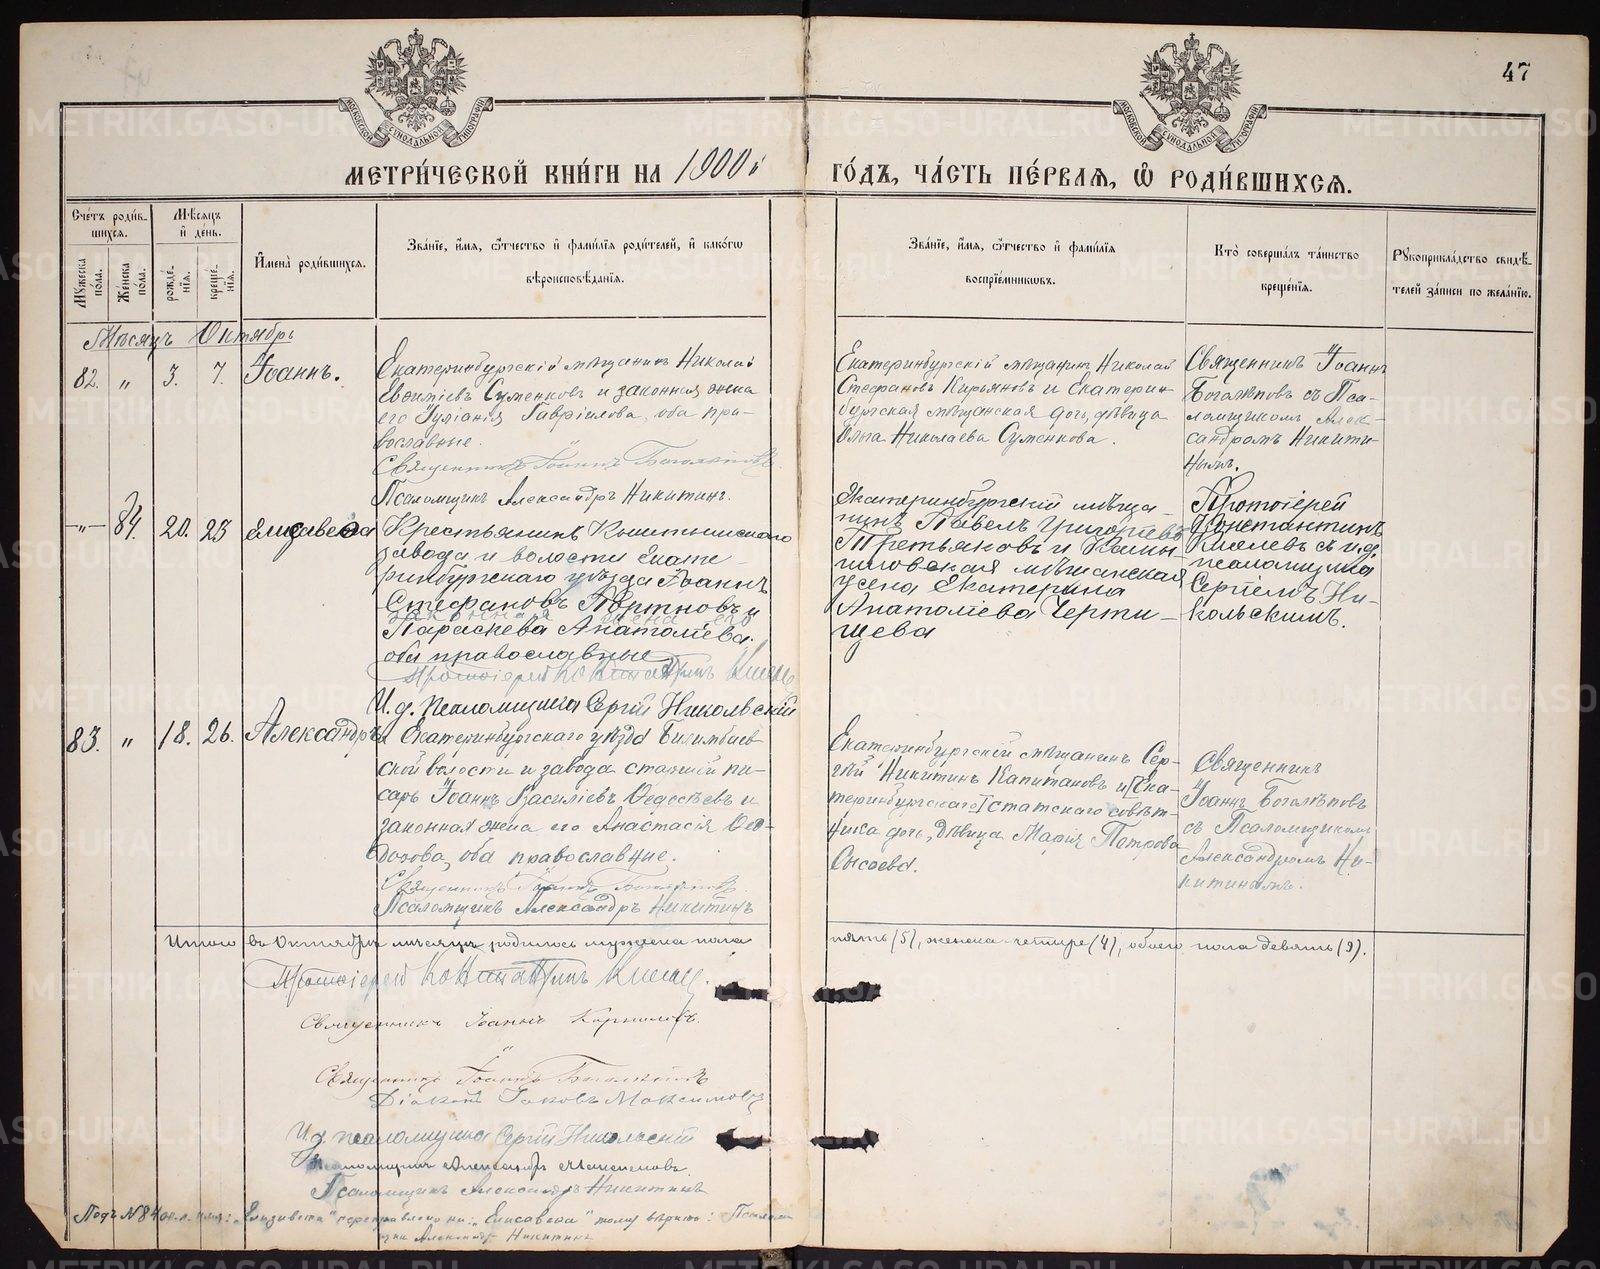 47
МЕТРИ́ЧЕСКОЙ КНИ́ГИ НА 1900й
ГО́ДЪ, ЧА́СТЬ ПЕ́РВАЯ, Ѡ РОДИ́ВШИХСЯ.
Сче́тъ роди́в-
шихся.
Му́жеска по́ла.
Же́нска по́ла.
Мѣ́сяцъ
и҆ де́нь.
рожде́-
нїя.
креще́-
нїя.
И҆мена̀ роди́вшихся.
Зва́нїе, и҆́мя, ѻ҆́тчество и҆ фами́лїя роди́телей, и҆ како́гѡ
вѣроисповѣ́данїя.
Зва́нїе, и҆́мя, ѻ҆́тчество и҆ фами́лїя
воспрїе́мникѡвъ.
Кто̀ соверша́лъ та́инство
креще́нїя.
Рꙋкоприкла́дство свидѣ́-
телей за́писи по жела́нїю.
Мѣсяцъ Октябрь
82. " 3. 7. Іоаннъ.
Екатеринбургскій мѣщанинъ Николай
Евѳиміевъ Суменковъ и законная жена
его Іуліанія Гавріилова, оба пра-
вославные.
Священникъ Іоаннъ Боголѣповъ
Псаломщикъ Александръ Никитинъ.
Екатеринбургскій мѣщанинъ Николай
Стефановъ Кирьяновъ и Екатерин-
бургская мѣщанская дочь, дѣвица
Ольга Николаева Суменкова.
Священникъ Іоаннъ
Боголѣповъ съ Пса-
ломщикомъ Алек-
сандромъ Никити-
нымъ.
—"— 84. 20. 23 Елисавеѳа
Крестьянинъ
завода и волости Екате-
ринбургскаго уѣзда Іоаннъ
Стефановъ Портновъ и
законная жена его
Параскева Анатоліева.
оба православные
Протоіерей
И. д. псаломщика Сергій Никольскій
Екатеринбургскій мѣща-
нинъ Павелъ Григорьевъ
Третьяковъ и Камы-
шловская мѣщанская
жена Екатерина
Анатоліева Черти-
щева
Протоіерей
Константинъ
съ и.д.
псаломщика
Сергіемъ Ни-
кольскимъ.
83. " 18. 26. Александръ
Екатеринбургскаго уѣзда Билимбаев-
ской волости и завода старшій пи-
сарь Іоаннъ Василіевъ Ѳедосѣевъ и
законная жена его Анастасія Ѳео-
дорова, оба православные.
Священникъ Іоаннъ Боголѣповъ.
Псаломщикъ Александръ Никитинъ
Екатеринбургскій мѣщанинъ Сер-
гѣй Никитинъ Капитановъ и [Ека-
теринбургскаго] статскаго совѣт-
ника дочь, дѣвица Марія Петрова
Сысоева.
Священникъ
Іоаннъ Боголѣповъ
съ Псаломщикомъ
Александромъ Ни-
китинымъ.
Итого въ Октябрѣ мѣсяцѣ родилось мужеска пола
пять (5), женска четыре (4), обоего пола девять (9).
Протоіерей
Священникъ Іоаннъ Корниловъ.
Священникъ Іоаннъ Боголѣповъ
Діаконъ Іаковъ Максимовъ
И. д. псаломщика Сергій Никольскій
Псаломщикъ Александръ
Псаломщикъ Александръ Никитинъ
Подъ № 84 имя: „Елизавета" переправлено на: „Елисавеѳа" тому вѣрить: Псалом-
щикъ Александръ Никитинъ
METRIKI.GASO-URAL.RU